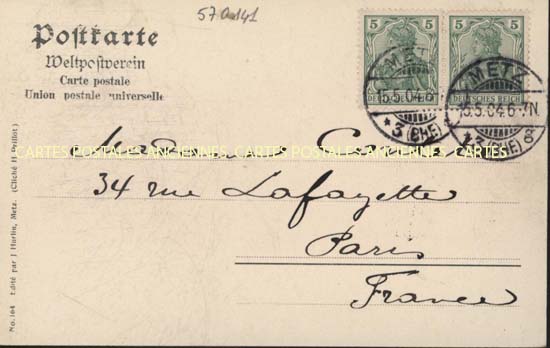 57 a 141
Postkarte
Weltpostverein
Carte postale
Union postale universelle
5 5 5 5
DEUTSCHES REICH
METZ
15.5.04.6-7N.
* 3 (BHF)
METZ
15.5.04.6-7N.
(BHF) 8
CARTES POSTALES ANCIENNES CARTES POSTALES ANCIENNES CARTES
Madame
34 rue Lafayette
Paris
France
No. 164 Edité par J Hurlin, Metz. (Cliché H Prillot)